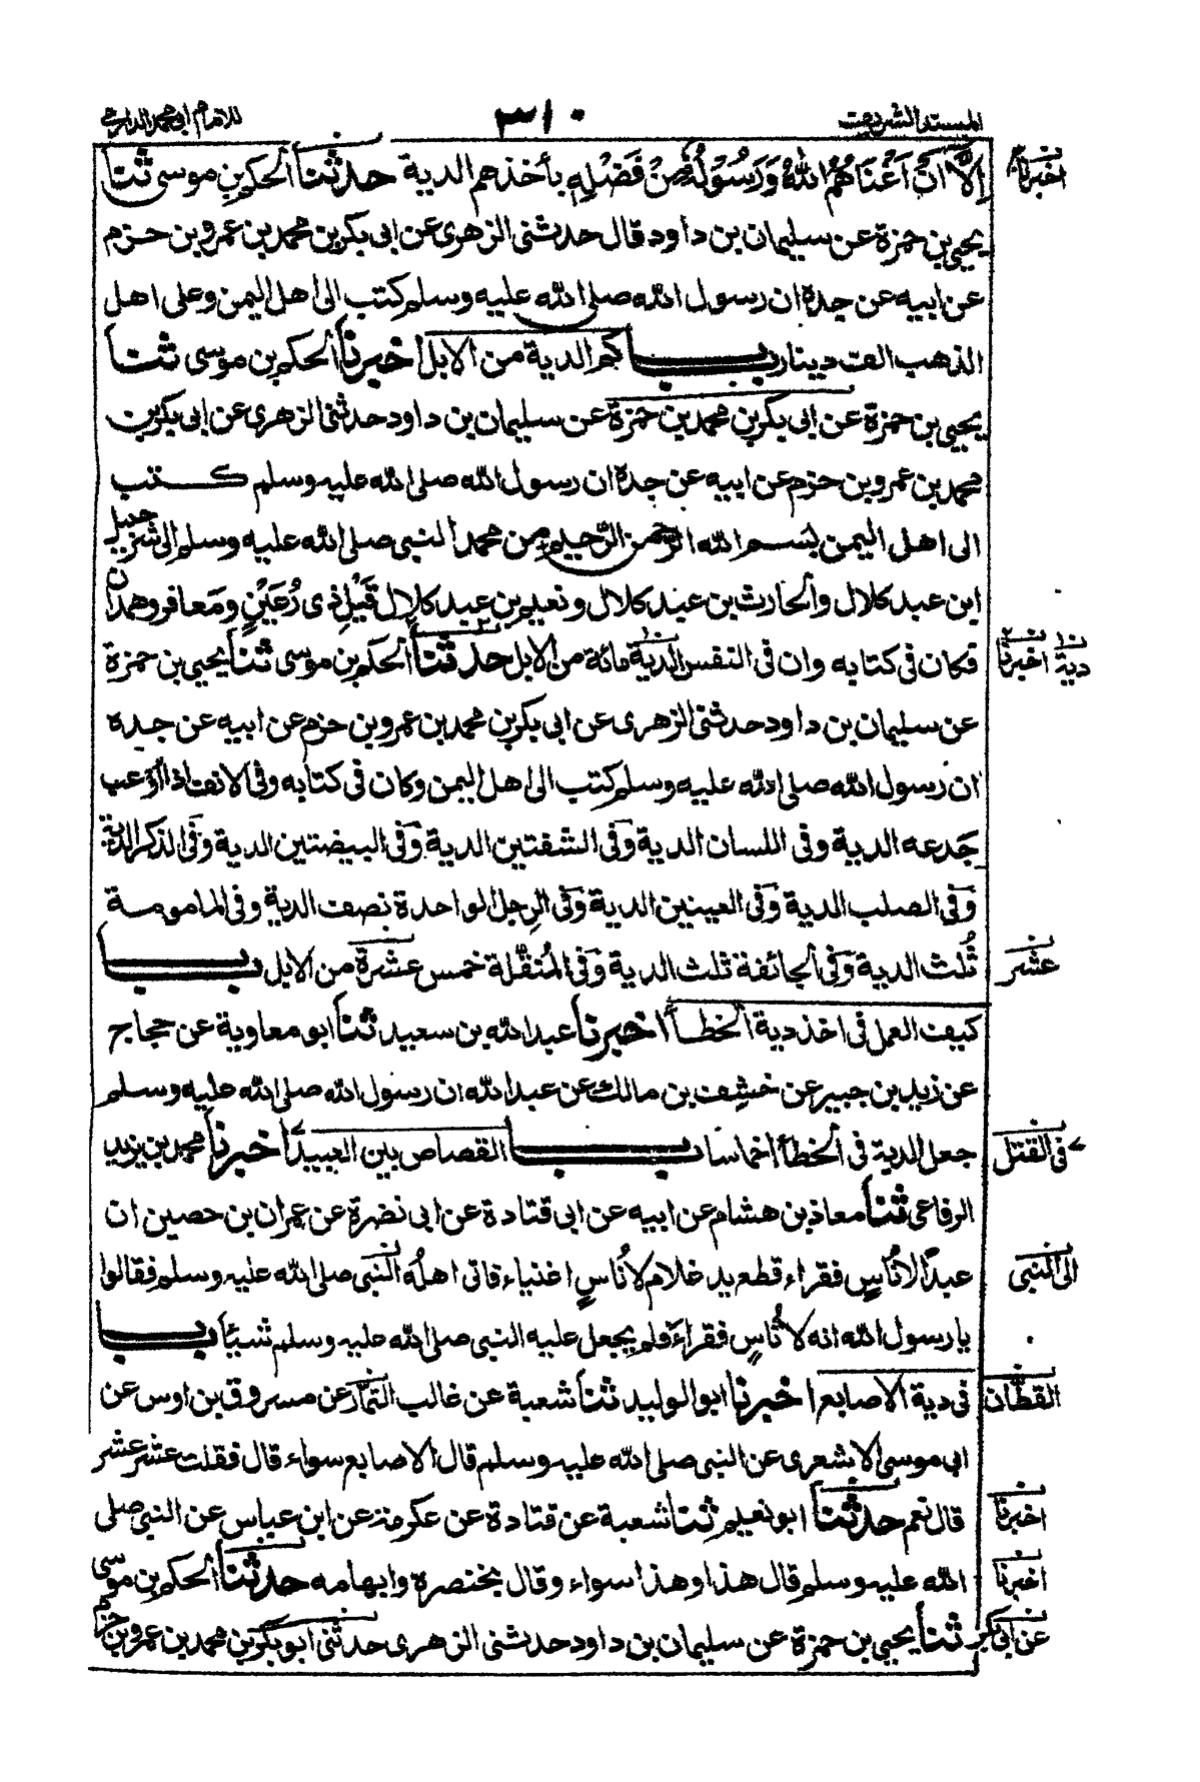 المسند الشريف ٣١٠ للامام ابى محمد الدارمى
اِلَّا اَنْ اَغْنَاهُمُ اللهُ وَرَسُوْلُهٗ مِنْ فَضْلِهٖ بأخذهم الدية حدثنا الحكم بن موسى ثنا
يحيى بن حمزة عن سليمان بن داود قال حدثنى الزهرى عن ابى بكر بن محمد بن عمرو بن حزم
عن ابيه عن جده ان رسول الله صلى الله عليه وسلم كتب الى اهل اليمن وعلى اهل
الذهب الف دينار باب كم الدية من الابل اخبرنا الحكم بن موسى ثنا
يحيى بن حمزة عن ابى بكر بن محمد بن حمزة عن سليمان بن داود حدثنى الزهرى عن ابى بكر بن
محمد بن عمرو بن حزم عن ابيه عن جده ان رسول الله صلى الله عليه وسلم كتب
الى اهل اليمن بسم الله الرحمن الرحيم من محمد النبى صلى الله عليه وسلم الى شرحبيل
ابن عبد كلال والحارث بن عبد كلال ونعيم بن عبد كلال قَيْلِ ذى رُعَيْنٍ ومَعافر وهمدان
فكان فى كتابه وان فى النفس الدية مائة من الابل حدثنا الحكم بن موسى ثنا يحيى بن حمزة
عن سليمان بن داود حدثنى الزهرى عن ابى بكر بن محمد بن عمرو بن حزم عن ابيه عن جده
ان رسول الله صلى الله عليه وسلم كتب الى اهل اليمن وكان فى كتابه وفى الانف اذا اُوْعب
جَدعه الدية وفى اللسان الدية وَفى الشفتين الدية وَفى البيضتين الدية وَفى الذكر الدية
وَفى الصلب الدية وَفى العينين الدية وَفى الرِجل الواحدة نصف الدية وفى المامومة
ثُلث الدية وَفى الجائفة ثلث الدية وَفى المُنقّلة خمس عشرة من الابل باب
كيف العمل فى اخذ دية الخطأ اخبرنا عبد الله بن سعيد ثنا ابو معاوية عن حجاج
عن زيد بن جبير عن خشِف بن مالك عن عبد الله ان رسول الله صلى الله عليه وسلم
جعل الدية فى الخطأ اخماسا باب القصاص بين العبيد اخبرنا محمد بن يزيد
الرفاعى ثنا معاذ بن هشام عن ابيه عن ابى قتادة عن ابى نضرة عن عمران بن حصين ان
عبداً لاُناسٍ فقراء قطع يد غلام لاُناسٍ اغنياء فاتى اهلُه النبى صلى الله عليه وسلم فقالوا
يا رسول الله انه لاُناسٍ فقراءَ فلم يجعل عليه النبى صلى الله عليه وسلم شيئاً باب
فى دية الاصابع اخبرنا ابو الوليد ثنا شعبة عن غالب التمّار عن مسروق بن اوس عن
ابى موسى الاشعرى عن النبى صلى الله عليه وسلم قال الاصابع سواء قال فقلت عشر عشر
قال نعم حدثنا ابو نعيم ثنا شعبة عن قتادة عن عكرمة عن ابن عباس عن النبى صلى
الله عليه وسلم قال هذا وهذا سواء وقال بخنصره وابهامه حدثنا الحكم بن موسى
ثنا يحيى بن حمزة عن سليمان بن داود حدثنى الزهرى حدثنى ابو بكر بن محمد بن عمرو بن حزم
اخبرنا
دية اخبرنا
عشر
فى القتل
الى النبى
القطّان
اخبرنا
اخبرنا
عن ابى بكر